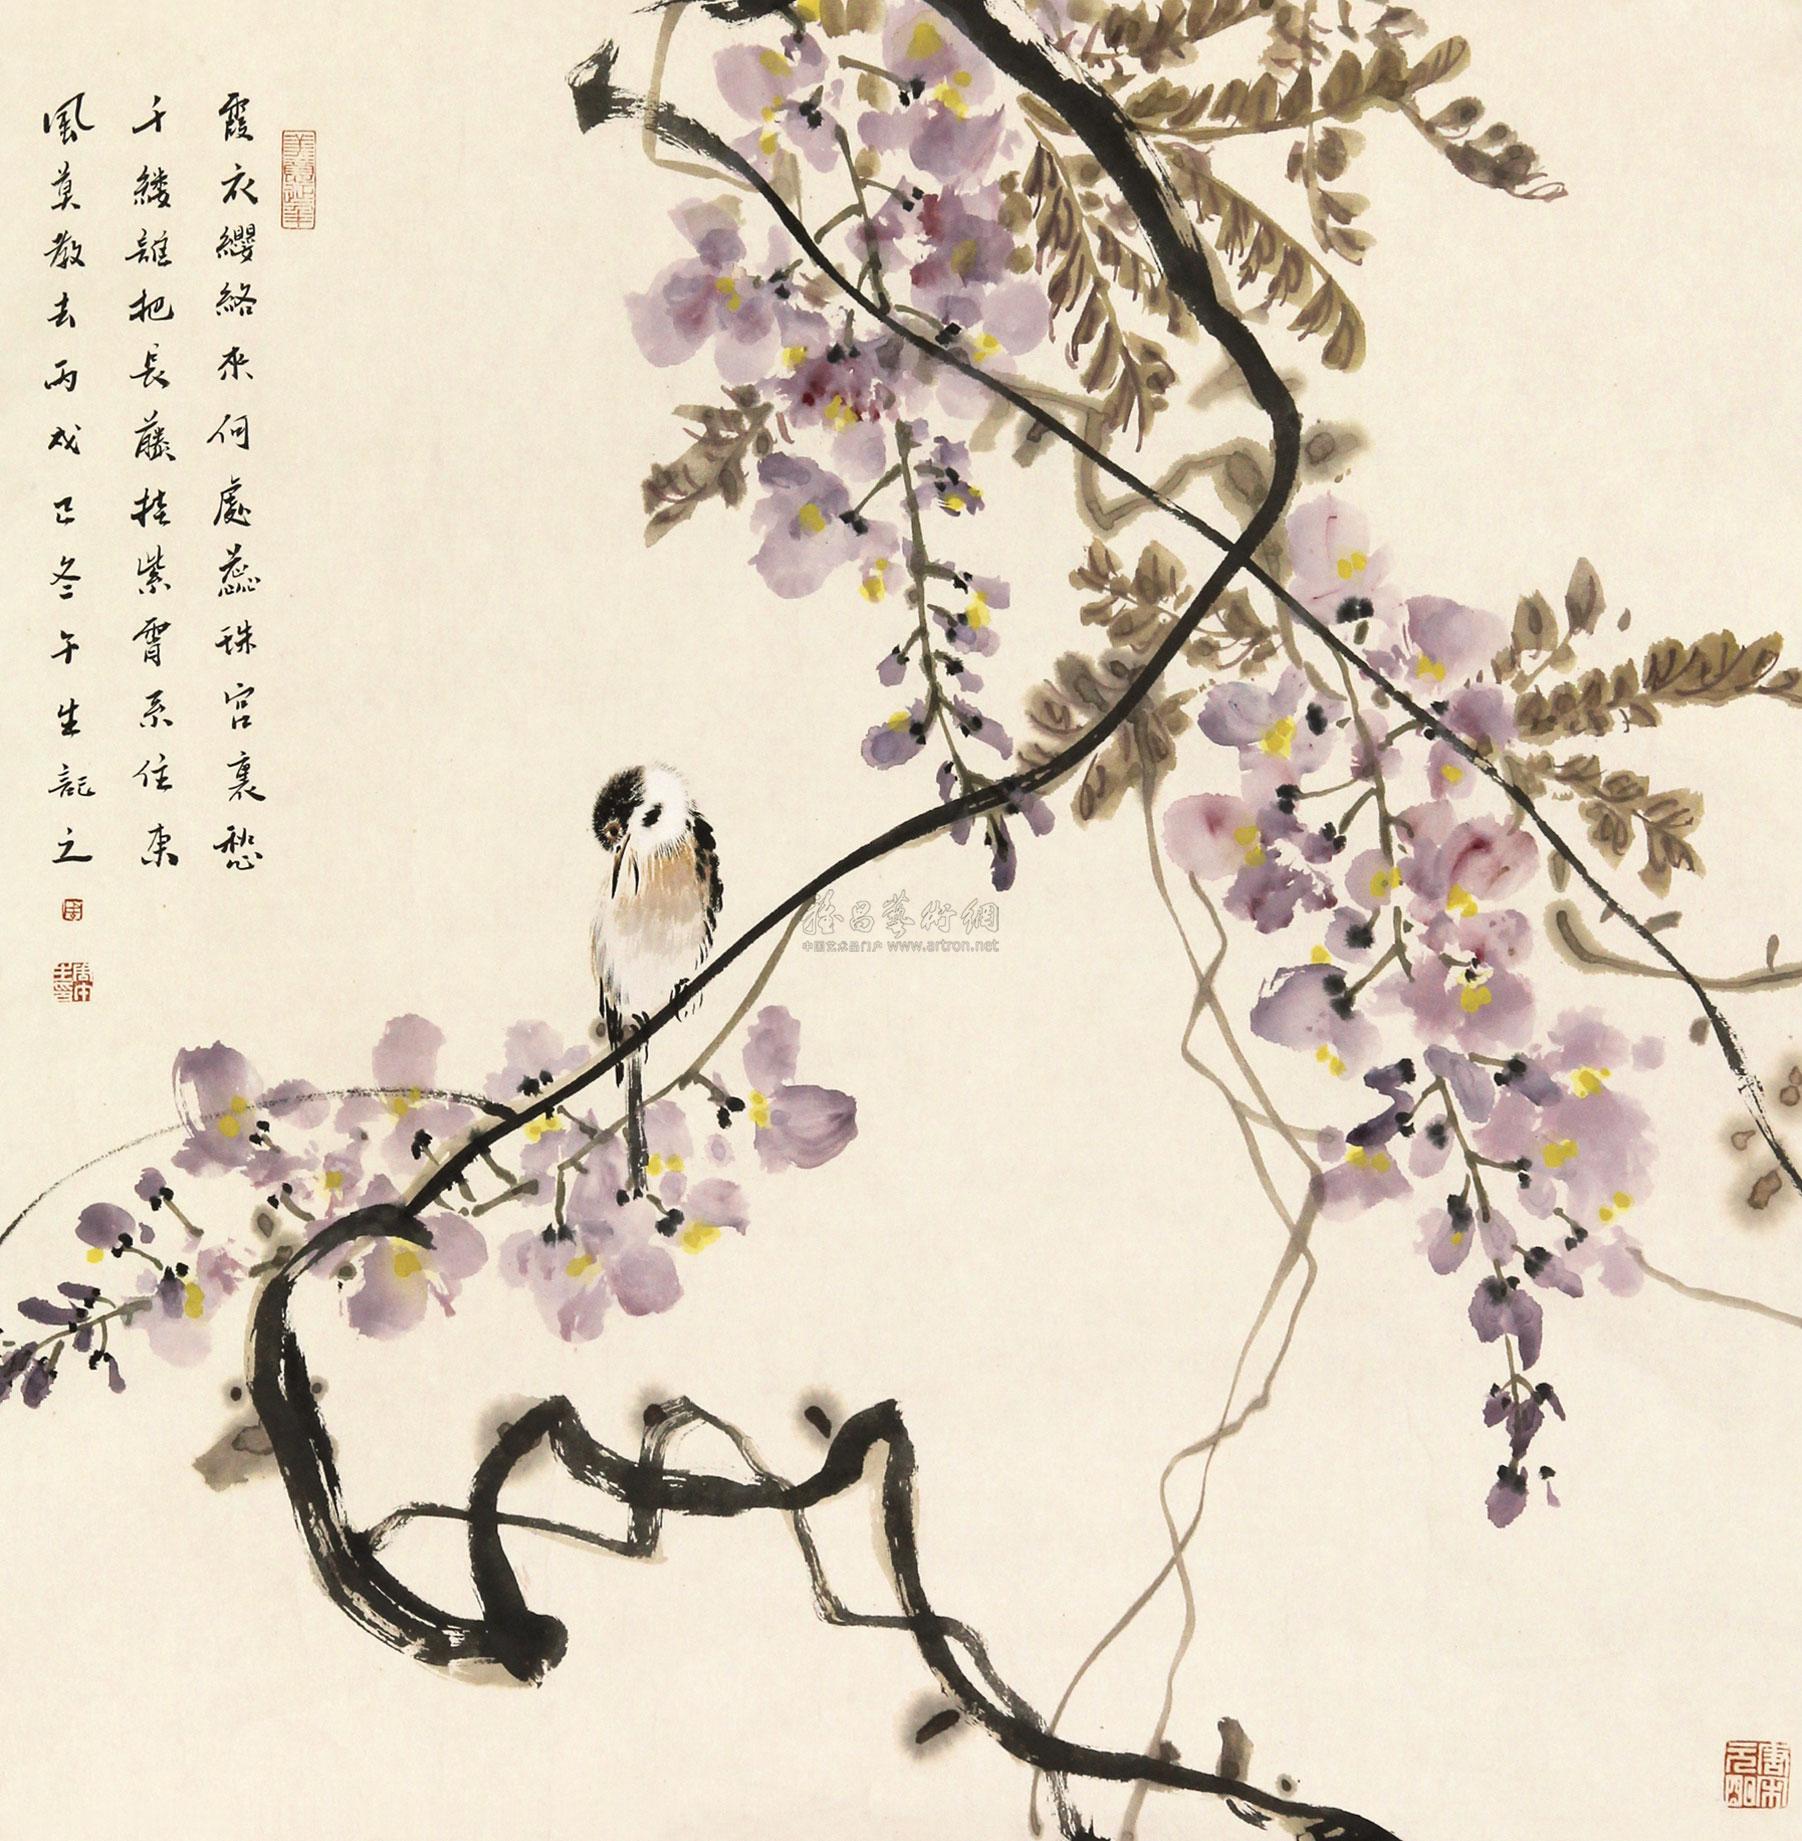 霞衣纓絡來何處蕊珠宮裏愁
千縷誰把長藤挂紫霄系住東
風莫教去丙戌已冬午生記之
雅昌藝術網
中国艺术品门户 www.artron.net